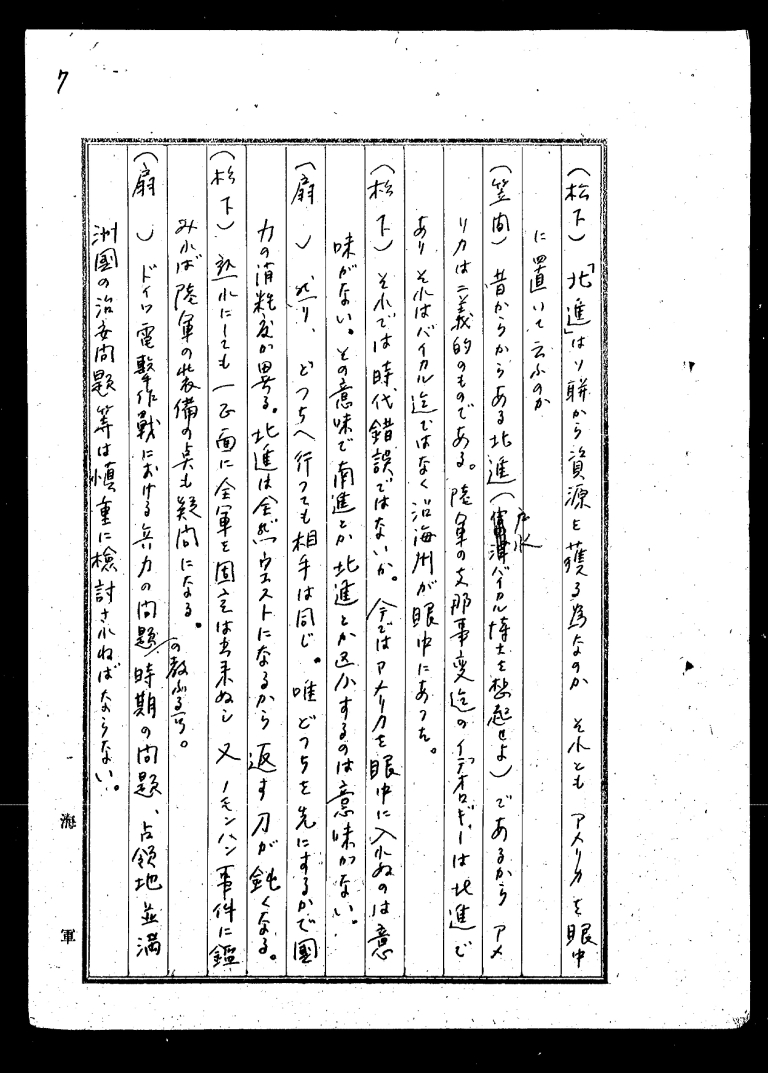 7
(松下) 「北進」はソ聯から資源を獲る為なのか それとも アメリカを眼中
に置いて云ふのか
(笠間) 昔からからある北進(戸水バイカル博士を想起せよ)であるから アメ
リカは二義的のものである。陸軍の支那事変迄のイデオロギーは北進で
あり それはバイカル迄ではなく沿海州が眼中にあつた。
(松下) それでは時代錯誤ではないか。今ではアメリカを眼中に入れぬのは意
味がない。その意味で南進とか北進とか区分するのは意味がない。
(扇 ) 然り、どつちへ行つても相手は同じ。唯どつちを先にするかで国
力の消耗度が異る。北進は全然ウエストになるから 返す刀が鈍くなる。
(松下) 孰れにしても 一正面に全軍を固定は出来ぬし 又 ノモンハン事件に鑑
みれば陸軍の装備の点も疑問になる。
(扇 ) ドイツ電撃作戦における兵力の問題の教ふる所。時期の問題、占領地並満
洲国の治安問題等は慎重に検討されねばならない。
海軍